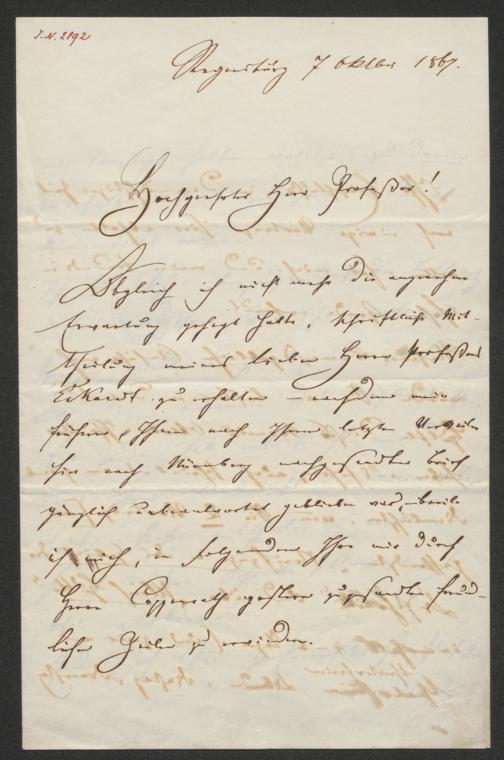 I.N. 2192
Regensburg 7 Oktber 1867.
Hochgeehrter Herr Professor!
Obgleich ich nicht mehr die angenehme
Erwartung gehegt hatte, schriftliche Mit-
theilung meines lieben Herrn Professors
Eckardt zu erhalten – nachdem mein
früherer, Ihnen nach Ihrem letzten
hier nach Nürnberg nachgesandter Brief
gänzlich unbeantwortet geblieben war, beeile
ich mich, im Folgenden Ihre mir durch
Herrn Coppenrath gestern zugesandten freund-
lichen Zeilen zu erwiedern.